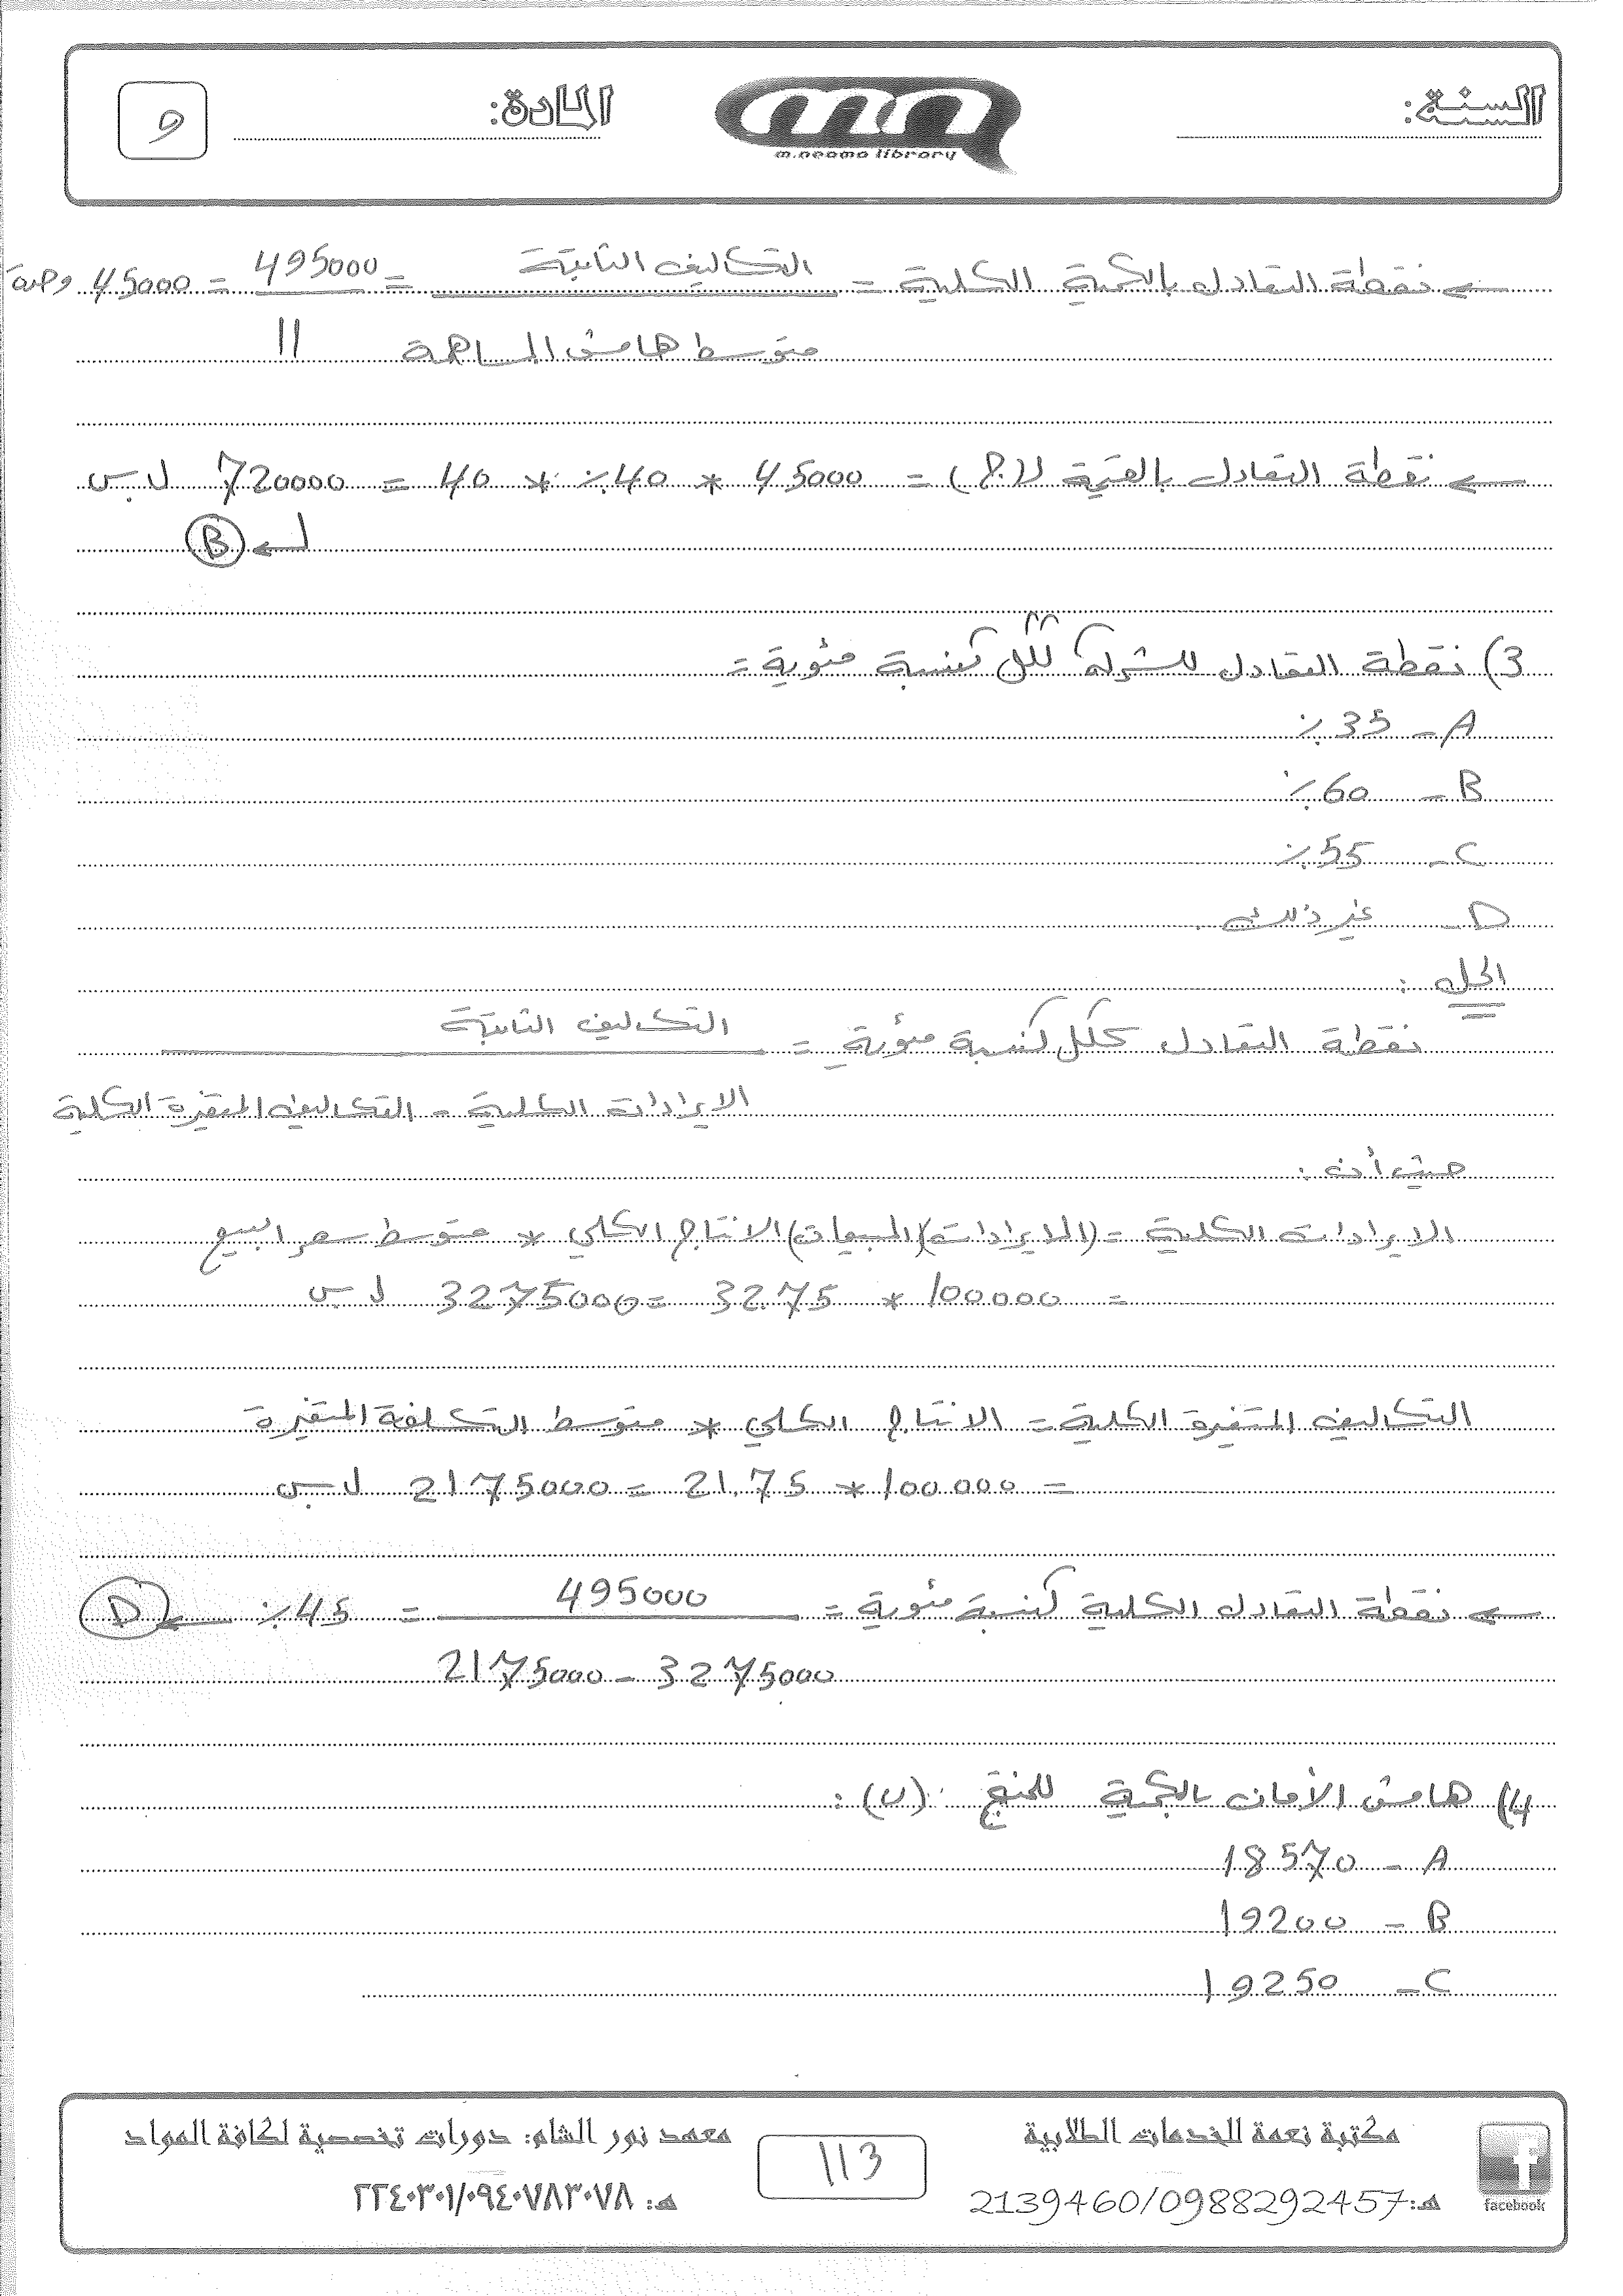 السنة:
المادة:
و
m.neama library
← نقطة التعادل بالكمية الكلية = التكاليف الثابتة / متوسط هامش المساهمة = 495000 / 11 = 45000 وحدة
← نقطة التعادل بالقيمة لـ (ج) = 45000 * 40٪ * 40 = 720000 ل.س
← B
3) نقطة التعادل للشركة ككل كنسبة مئوية =
A - 35٪
B - 60٪
C - 55٪
D - غير ذلك.
الحل:
نقطة التعادل ككل كنسبة مئوية = التكاليف الثابتة
الايرادات الكلية - التكاليف المتغيرة الكلية
حيث أن:
الايرادات الكلية = (الايرادات)(المبيعات) الانتاج الكلي * متوسط سعر البيع
= 100000 * 32.75 = 3275000 ل.س
التكاليف المتغيرة الكلية = الانتاج الكلي * متوسط التكلفة المتغيرة
= 100000 * 21.75 = 2175000 ل.س
← نقطة التعادل الكلية كنسبة مئوية = 495000 / 3275000 - 2175000 = 45٪ ← D
4) هامش الأمان بالكمية للمنتج (ب):
A - 18570
B - 19200
C - 19250
مكتبة نعمة للخدمات الطلابية
هـ: 2139460/0988292457
113
معهد نور الشام: دورات تخصصية لكافة المواد
هـ: ٢٢٤٠٣٠١/٠٩٤٠٧٨٣٠٧٨
facebook